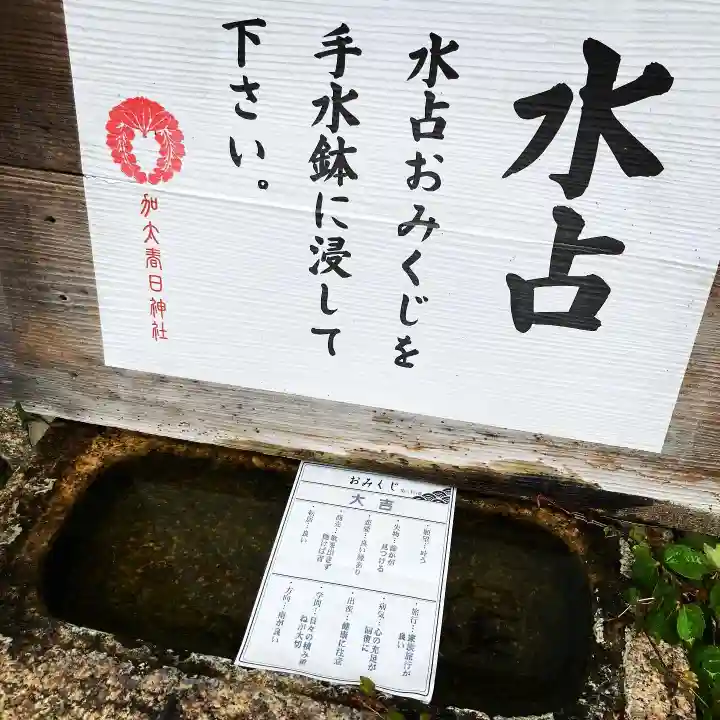 水占
水占おみくじを
手水鉢に浸して
下さい。
加太春日神社
おみくじ
大吉
・願望…叶う
・失物…誰かが
見つける
・恋愛…良い縁あり
・商売…欲を出さず
働けば吉
・転居…良い
・旅行…家族旅行が
良い
・病気…心の充足が
回復に
・出産…健康に注意
・学問…日々の積み重
ねが大切
・方向…南が良い